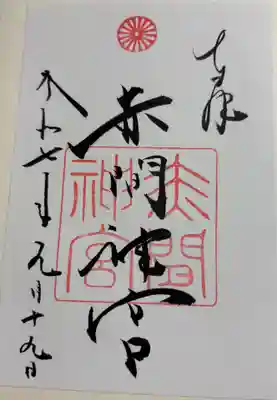 奉拝
赤間神宮
赤間
神宮
令和七年九月十九日